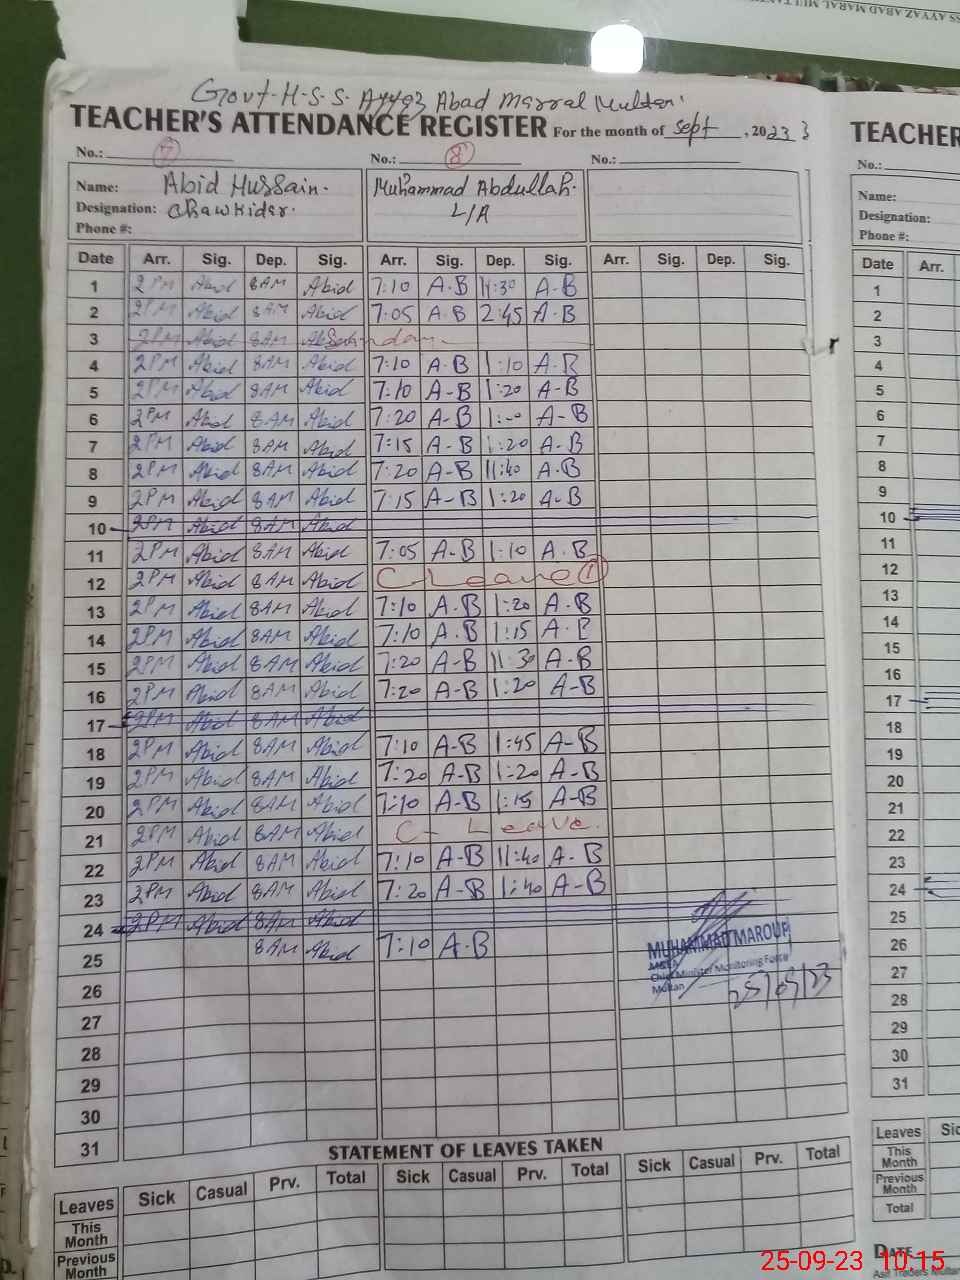 Govt. H.S.S. Ayyaz Abad Marral Multan
TEACHER'S ATTENDANCE REGISTER For the month of Sept, 2023
TEACHER
No.: 7 No.: 8 No.:
No.:
Name: Abid Hussain. Muhammad Abdullah.
Designation: Chawkider. L/A
Phone #:
Name:
Designation:
Phone #:
Date Arr. Sig. Dep. Sig. Arr. Sig. Dep. Sig. Arr. Sig. Dep. Sig. Date Arr.
1 2PM Abid 8AM Abid 7:10 A.B 11:30 A-B 1
2 2PM Abid 8AM Abid 7:05 A.B 2:45 A-B 2
3 2PM Abid 8AM 3
4 2PM Abid 8AM Abid 7:10 A.B 1:10 A.B 4
5 2PM Abid 8AM Abid 7:10 A-B 1:20 A-B 5
6 2PM Abid 8AM Abid 7:20 A-B A-B 6
7 2PM Abid 8AM Abid 7:15 A-B 1:20 A-B 7
8 2PM Abid 8AM Abid 7:20 A-B 11:40 A.B 8
9 2PM Abid 8AM Abid 7:15 A-B 1:20 A-B 9
10 2PM Abid 8AM Abid 10
11 2PM Abid 8AM Abid 7:05 A-B 1:10 A.B 11
12 2PM Abid 8AM Abid C-Leave 1 12
13 2PM Abid 8AM Abid 7:10 A.B 1:20 A.B 13
14 2PM Abid 8AM Abid 7:10 A.B 1:15 A.B 14
15 2PM Abid 8AM Abid 7:20 A-B 11:30 A-B 15
16 2PM Abid 8AM Abid 7:20 A-B 1:20 A-B 16
17 2PM Abid 8AM Abid 17
18 2PM Abid 8AM Abid 7:10 A-B 1:45 A-B 18
19 2PM Abid 8AM Abid 7:20 A-B 1:20 A-B 19
20 2PM Abid 8AM Abid 7:10 A-B 1:15 A-B 20
21 2PM Abid 8AM Abid C- Leave. 21
22 2PM Abid 8AM Abid 7:10 A-B 11:40 A-B 22
23 2PM Abid 8AM Abid 7:20 A-B 1:40 A-B 23
24 2PM Abid 8AM Abid 24
25 8AM Abid 7:10 A-B 25
MUHAMMAD MAROUF
MEA
Chief Minister Monitoring Force
Multan
25/09/23
26 26
27 27
28 28
29 29
30 30
31 31
STATEMENT OF LEAVES TAKEN
Leaves Sick Casual Prv. Total Sick Casual Prv. Total Sick Casual Prv. Total
This Month
Previous Month
Leaves
This Month
Previous Month
Total
DATE
25-09-23 10:15